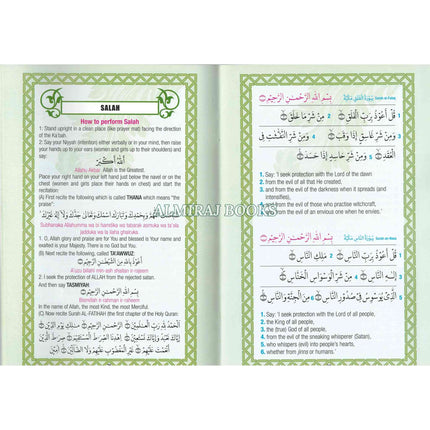 SALAH
How to perform Salah
1. Stand upright in a clean place (like prayer mat) facing the direction
of the Ka'bah.
2. Say your Niyyah (intention) either verbally or in your mind, then raise
your hands to your ears (women and girls up to their shoulders) and
say:
اَللّٰهُ اَكْبَرُ
Allahu Akbar Allah is the Greatest.
Place your right hand on your left hand just below the navel or on the
chest (women and girls place their hands on chest) and start the
recitation:
(A) First recite the following which is called THANA which means "the
praise".
Subhanaka Allahumma wa bi hamdika wa tabarak asmuka wa ta'ala
jadduka wa la ilaha ghairuka.
1. O, Allah glory and praise are for You and blessed is Your name and
exalted is your Majesty. There is no God but You.
(B) Next recite the following, called TA'AWWUZ:
اَعُوْذُ بِاللّٰهِ مِنَ الشَّيْطٰنِ الرَّجِيْمِ
A'uzu billahi min-ash shaitan ir-rajeem
2. I seek the protection of ALLAH from the rejected satan.
And then say TASMIYAH
بِسْمِ اللّٰهِ الرَّحْمٰنِ الرَّحِيْمِ
Bismillah ir-rahman ir-raheem
In the name of Allah, the most Kind, the most Merciful.
(C) Now recite Surah AL-FATIHAH (the first chapter of the Holy Quran:
اَلْحَمْدُ لِلّٰهِ رَبِّ الْعٰلَمِيْنَ الرَّحْمٰنِ الرَّحِيْمِ مٰلِكِ يَوْمِ الدِّيْنِ
اِيَّاكَ نَعْبُدُ وَاِيَّاكَ نَسْتَعِيْنُ اِهْدِنَا الصِّرَاطَ الْمُسْتَقِيْمَ صِرَاطَ الَّذِيْنَ
اَنْعَمْتَ عَلَيْهِمْ غَيْرِ الْمَغْضُوْبِ عَلَيْهِمْ وَلَا الضَّآلِّيْنَ
سُوْرَةُ الْفَلَقِ مَكِّيَّةٌ بِسْمِ اللّٰهِ الرَّحْمٰنِ الرَّحِيْمِ
1 قُلْ اَعُوْذُ بِرَبِّ الْفَلَقِ 2 مِنْ شَرِّ مَا خَلَقَ
3 وَمِنْ شَرِّ غَاسِقٍ اِذَا وَقَبَ 4 وَمِنْ شَرِّ النَّفّٰثٰتِ فِى
الْعُقَدِ 5 وَمِنْ شَرِّ حَاسِدٍ اِذَا حَسَدَ
1. Say: 'I seek protection with the Lord of the dawn
2. from the evil of all that He created,
3. and from the evil of the darkness when it spreads (and
intensifies),
4. and from the evil of those who practise witchcraft,
5. and from the evil of an envious one when he envies.'
سُوْرَةُ النَّاسِ مَكِّيَّةٌ بِسْمِ اللّٰهِ الرَّحْمٰنِ الرَّحِيْمِ
1 قُلْ اَعُوْذُ بِرَبِّ النَّاسِ 2 مَلِكِ النَّاسِ 3
اِلٰهِ النَّاسِ 4 مِنْ شَرِّ الْوَسْوَاسِ الْخَنَّاسِ
5 الَّذِىْ يُوَسْوِسُ فِىْ صُدُوْرِ النَّاسِ 6 مِنَ الْجِنَّةِ وَالنَّاسِ
1. Say: 'I seek protection with the Lord of all people,
2. the King of all people,
3. the (true) God of all people,
4. from the evil of the sneaking whisperer (Satan),
5. who whispers (evil) into people's hearts,
6. whether from jinns or humans.'
ALMIRAJ BOOKS